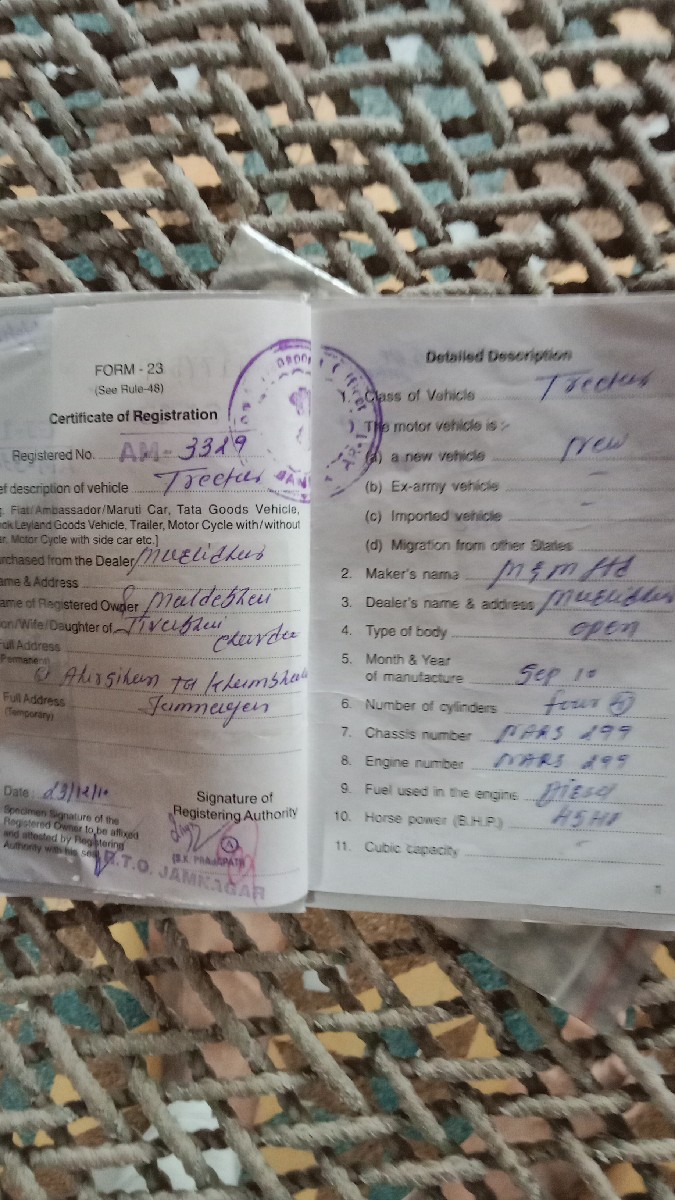 FORM - 23
(See Rule-48)
Certificate of Registration
Registered No. AM-3329
ef description of vehicle Trecter
. Fiat/Ambassador/Maruti Car, Tata Goods Vehicle,
ok Leyland Goods Vehicle, Trailer, Motor Cycle with/without
er. Motor Cycle with side car etc.]
rchased from the Dealer
ame & Address
ame of Registered Owner
on/Wife/Daughter of
Full Address
(Permanent)
Full Address
(Temporary)
Date: 23/12/10
Specimen Signature of the
Registered Owner to be affixed
and attested by Registering
Authority with his seal
Signature of
Registering Authority
R.T.O. JAMNAGAR
Detailed Description
1. Class of Vehicle Trecter
The motor vehicle is :-
(a) a new vehicle new
(b) Ex-army vehicle -
(c) Imported vehicle -
(d) Migration from other States
2. Maker's nama M&M Ltd
3. Dealer's name & address
4. Type of body open
5. Month & Year
of manufacture Sep 10
6. Number of cylinders four
7. Chassis number
8. Engine number
9. Fuel used in the engine Diesel
10. Horse power (B.H.P.) 45HP
11. Cubic capacity -